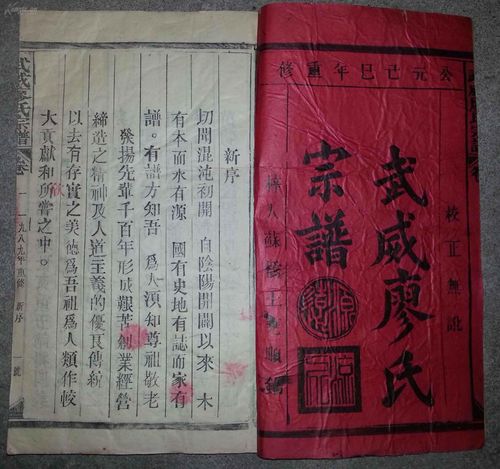 公元己巳年重修
校正無訛
武威廖氏
宗譜
新序
切聞混沌初開 自陰陽開闢以來 木
有本而水有源 國有史地有誌而家有
譜。有譜方知吾 為人須知尊祖敬老
發揚先輩千百年形成艱苦創業經營
締造之精神及人道主義的優良傳統
以去有存實之美德為吾祖為人類作較
大貢獻和所嘗之中。
武威廖氏宗譜 卷一 一九八九年重修 新序 一號